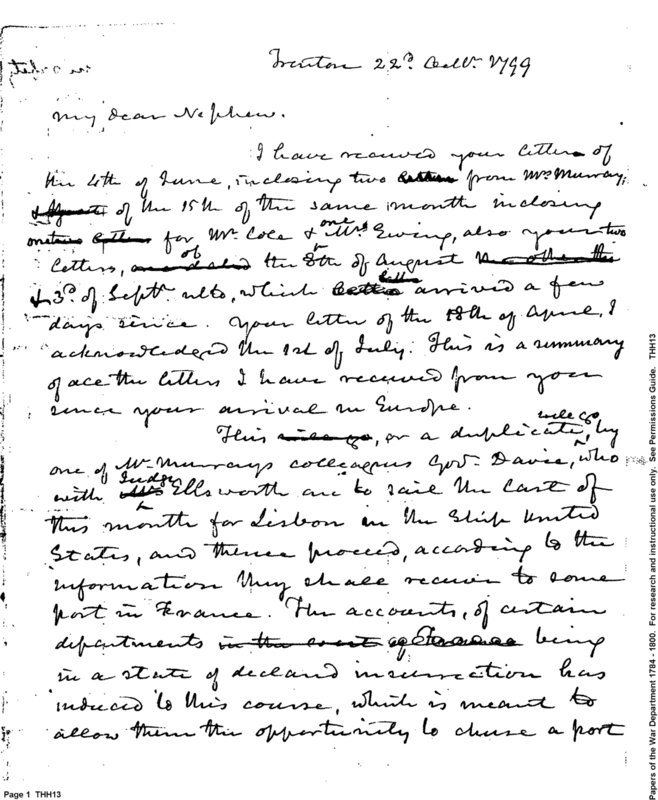 Trenton 22d. Octbr. 1799
My dear Nephew.
I have received your letters of
the 4th of June, inclosing two letters from Mrs Murray,
& of the 15th of the same month inclosing
one letters for Mr. Cole & one Mrs Ewing, also your two
letters, of the 8th of August
& 3d of Septr ulto, which letters arrived a few
days since. Your letter of the 18th of April, I
acknowledged the 1st of July. This is a summary
of all the letters I have received from you
since your arrival in Europe.
This will go, or a duplicate, will go by
one of Mr. Murrays colleagues Govr. Davie, who
with Mr. Judge Ellsworth are to sail the last of
this month for Lisbon in the Ship United
States, and thence proceed, according to the
information they shall receive to some
port in France. The accounts, of certain
departments in the west of France being
in a state of declared insurrection has
induced to this course, which is meant to
allow them the opportunity to chuse a port
Page 1 THH13
Papers of the War Department 1784 - 1800. For research and instructional use only. See Permissions Guide. THH13